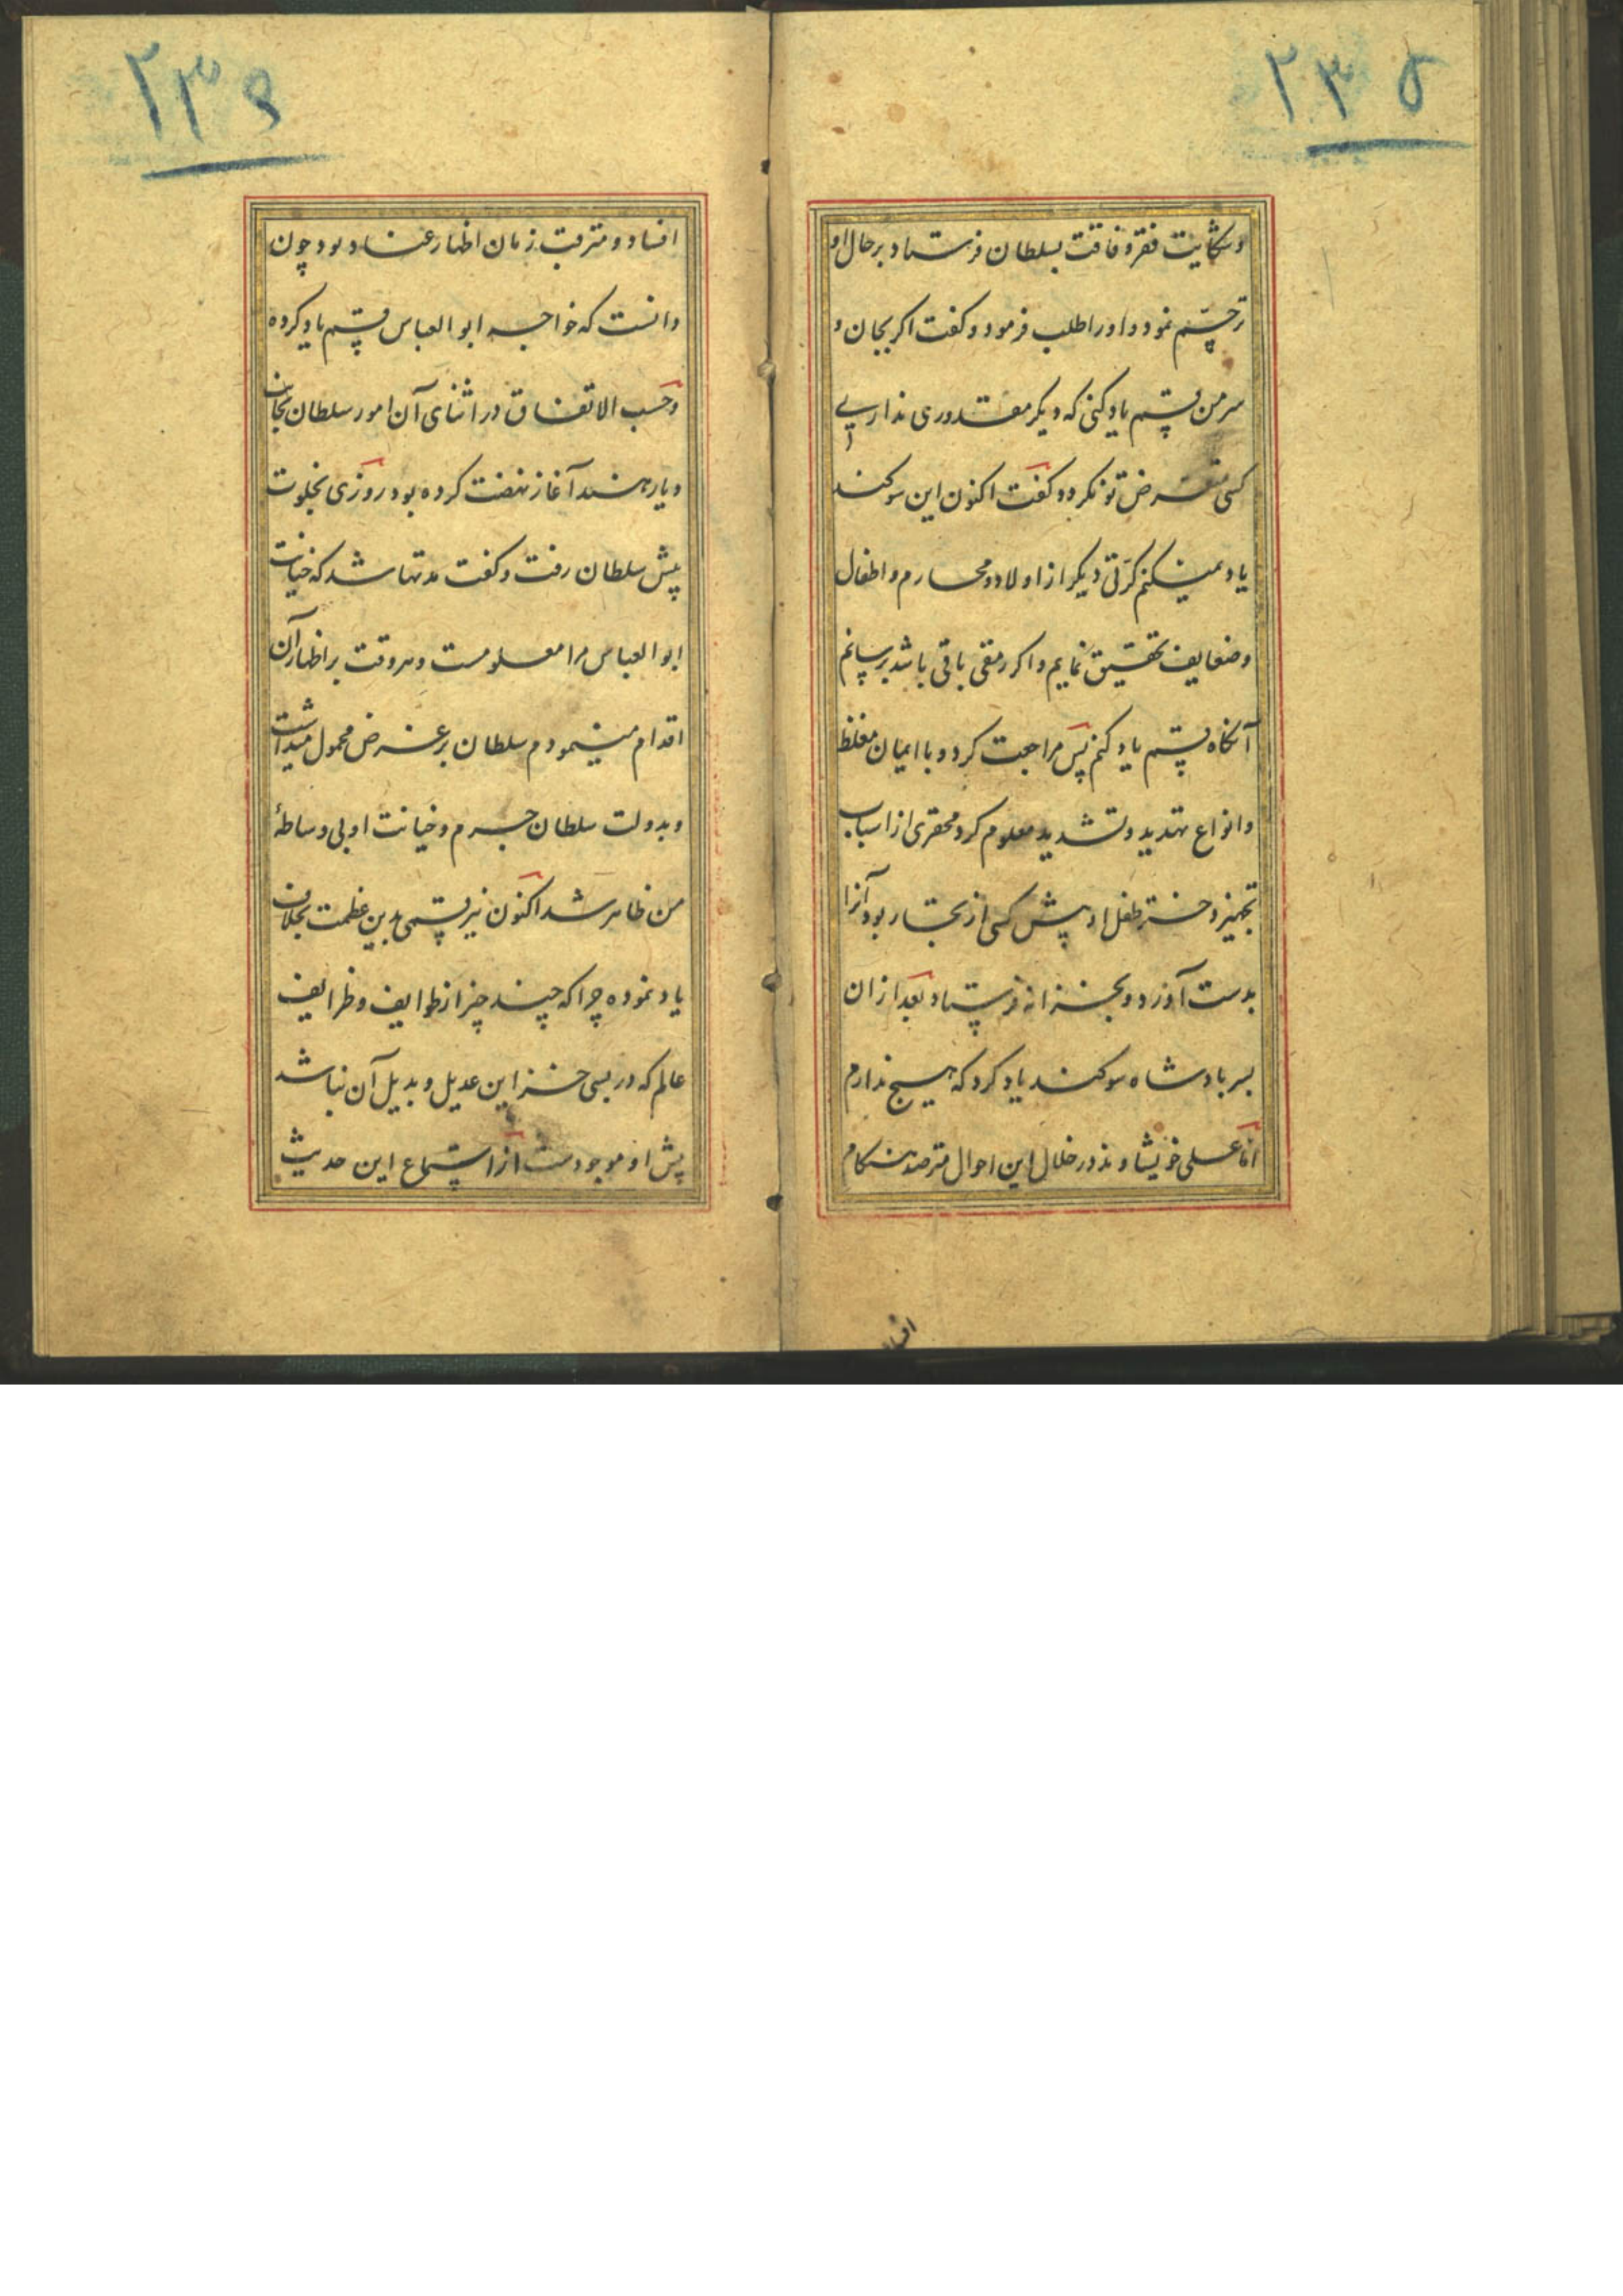 ۲۳۵
و شکایت فقر و فاقت بسلطان فرستاد بر حال او
ترحّم نمود و او را طلب فرمود و کفت اکر بجان و
سر من قسم یاد کنی که دیکر مقدوری نداری
کسی متعرض تو نکردد کفت اکنون این سوکند
یاد نمیکنم کرّتی دیکر از اولاد و محارم و اطفال
و ضعایف تحقیق نمایم و اکر رمقی باقی باشد برسانم
آنکاه قسم یاد کنم پس مراجعت کرد و با ایمان مغلظ
و انواع تهدید و تشدید معلوم کرد محقری از اسباب
تجهیز دختر طفل او پیش کسی از تجار بود آنرا
بدست آورد و بخزانه فرستاد بعد از ان
بسر بادشاه سوکند یاد کرد که هیچ ندارم
اما علی خویشاوند در خلال این احوال مترصد هنکام
افساد
۲۳۶
افساد و مترقب زمان اظهار عناد بود چون
دانست که خواجه ابو العباس قسم یاد کرده
و حسب الاتفاق در اثنای آن امور سلطان بجانب
دیار هند آغاز نهضت کرده بود روزی بخلوت
پیش سلطان رفت و کفت مدتها شد که خیانت
ابو العباس مرا معلومست و هر وقت بر اظهار آن
اقدام مینمودم سلطان بر غرض محمول میداشت
و بدولت سلطان جرم و خیانت او بی وساطهٔ
من ظاهر شد اکنون نیز قسمی بدین عظمت بخلاف
یاد نموده چرا که چند چیز از طوایف و ظرایف
عالم که در بسی خزاین عدیل و بدیل آن نباشد
پیش او موجودست از استماع این حدیث